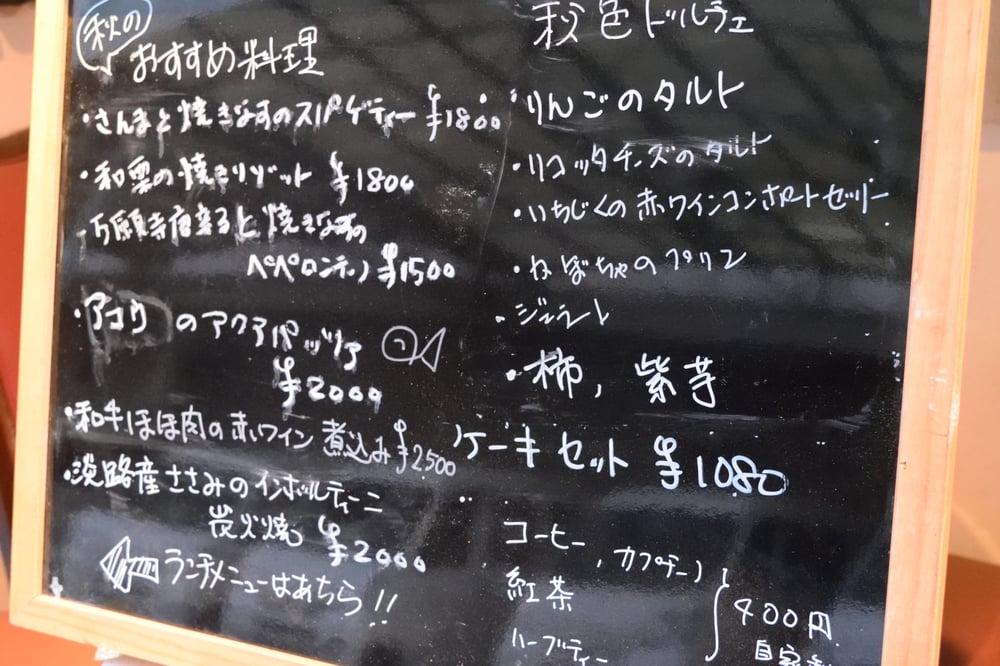 秋の
おすすめ料理
・さんまと焼きなすのスパゲティー ¥1800
・和栗の焼きリゾット ¥1800
・万願寺唐辛子と焼きなすの
ペペロンチーノ ¥1500
・アコウのアクアパッツァ
¥2000
・和牛ほほ肉の赤ワイン煮込み ¥2500
・淡路産ささみのインボルティーニ
炭火焼 ¥2000
ランチメニューはあちら!!
秋色ドルチェ
・りんごのタルト
・リコッタチーズのタルト
・いちじくの赤ワインコンポートゼリー
・かぼちゃのプリン
・ジェラート
・柿, 紫芋
ケーキセット ¥1080
コーヒー, カプチーノ
紅茶
ハーブティー
400円